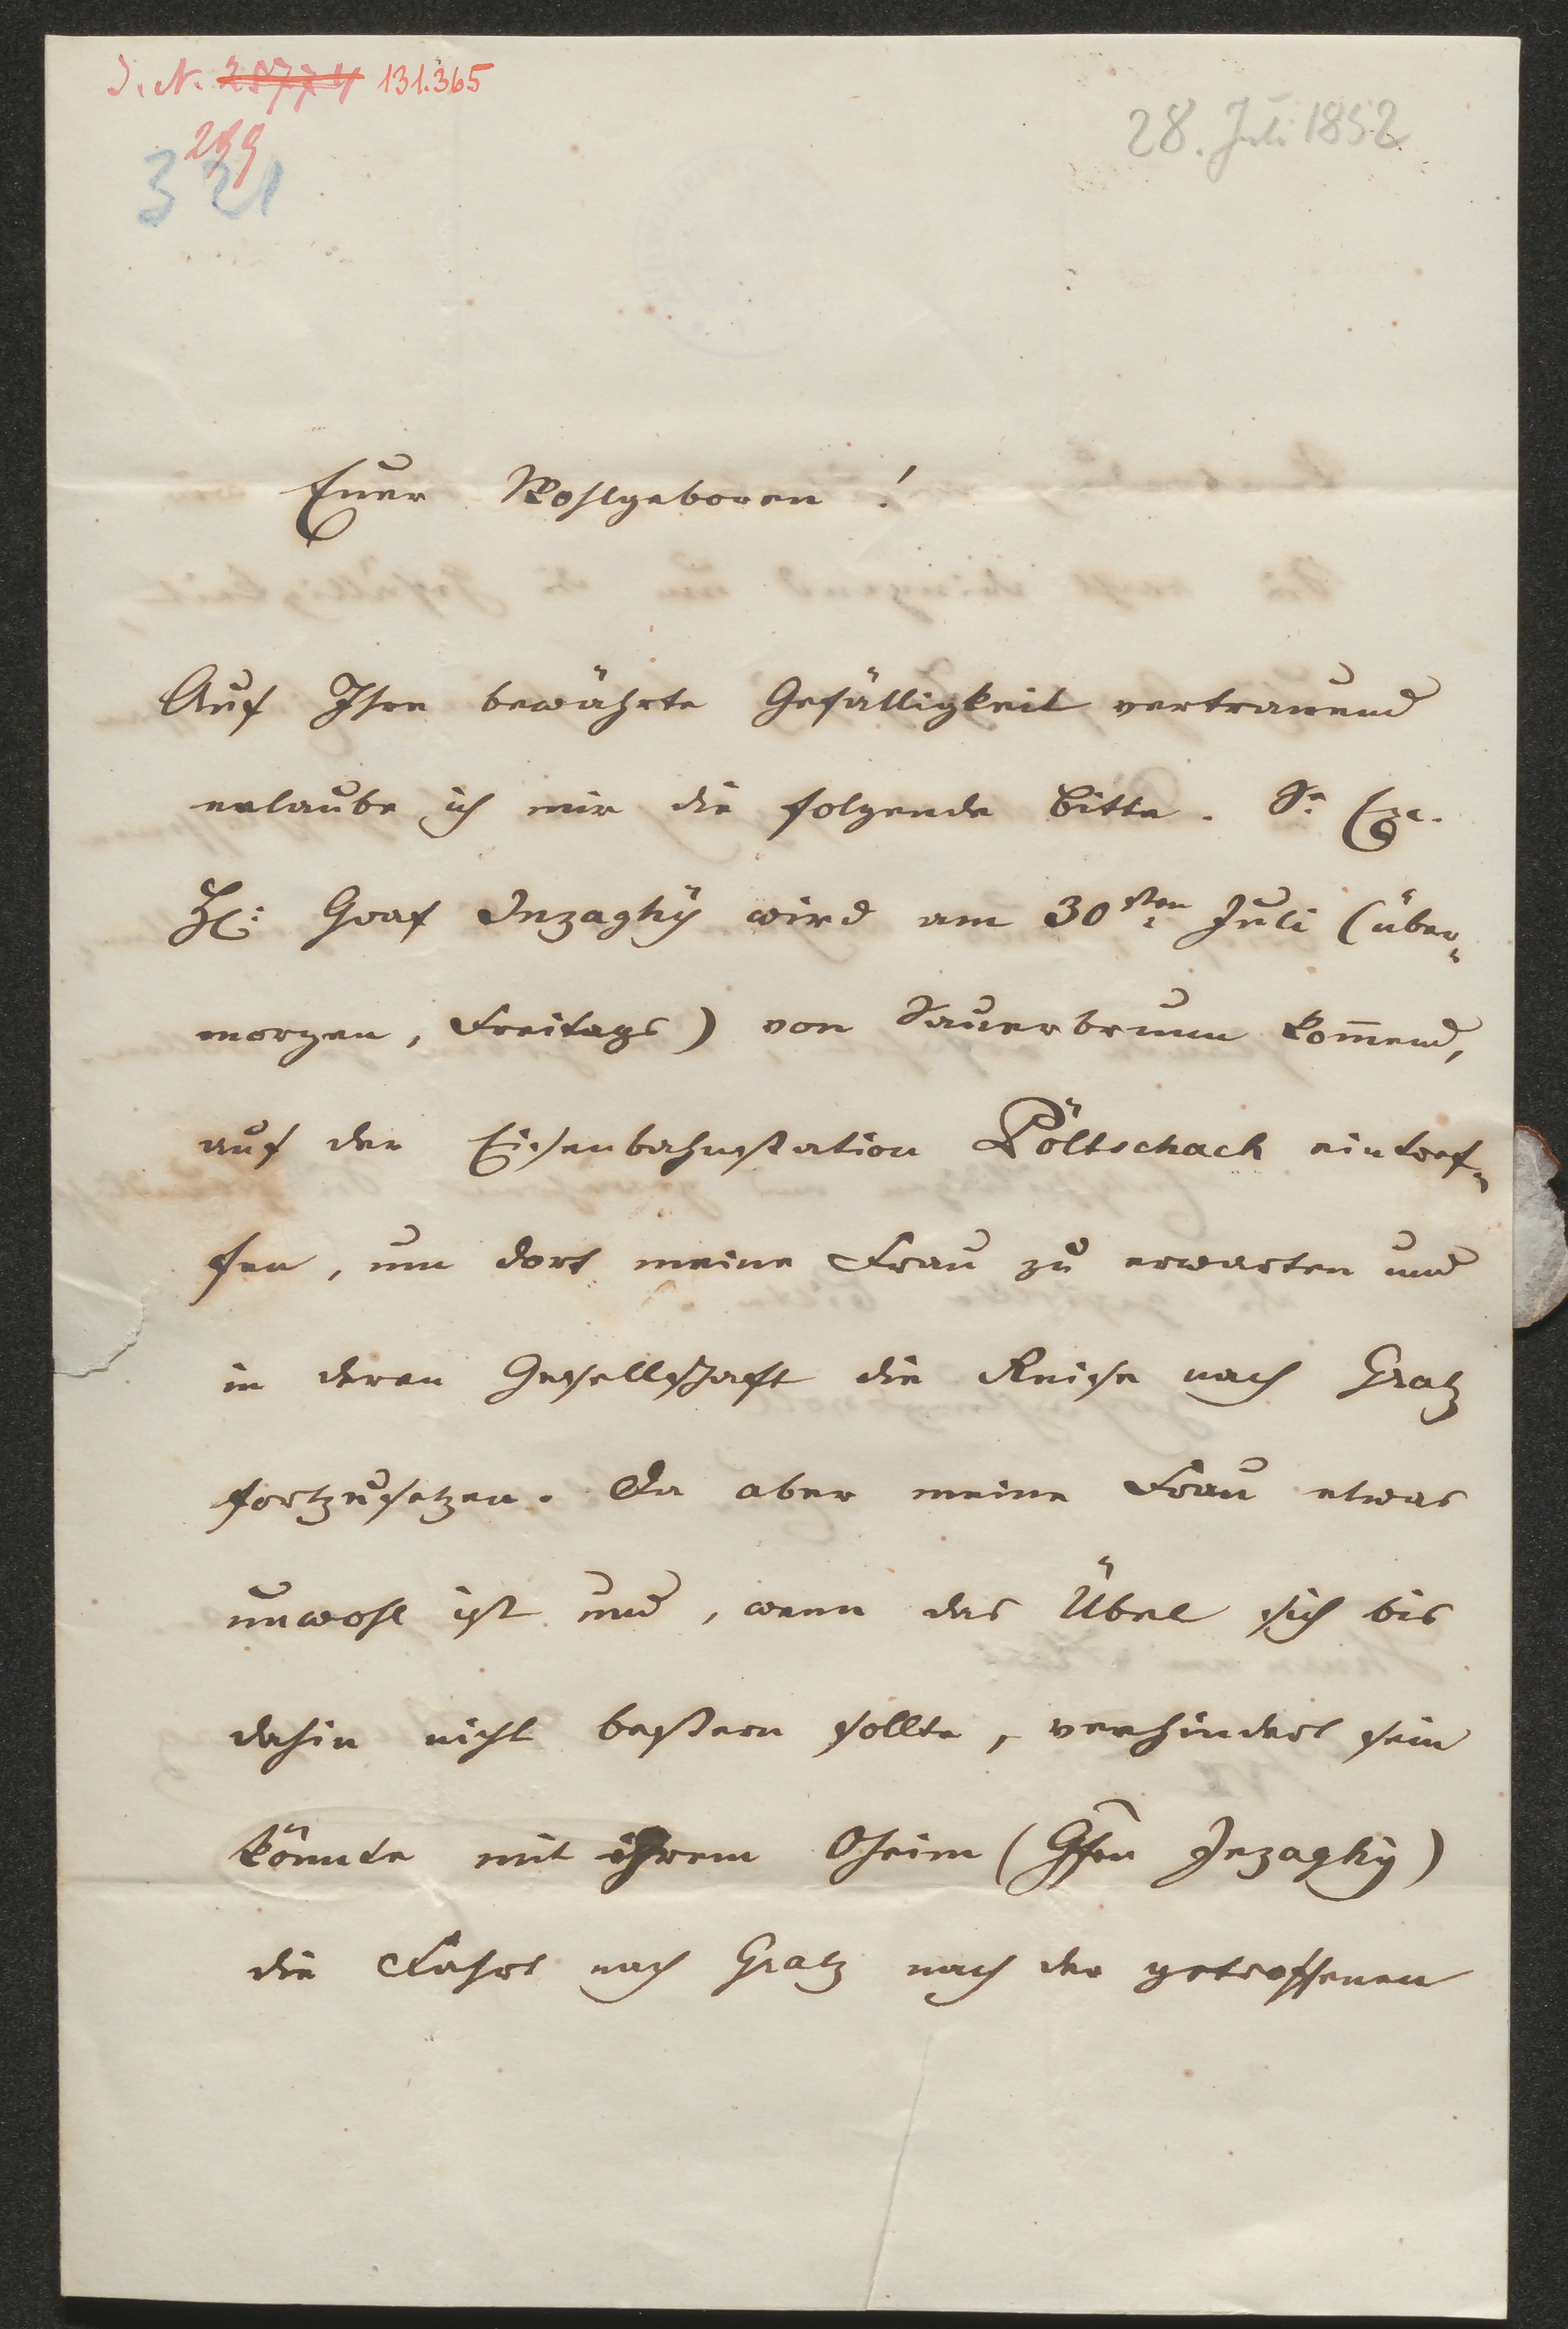 I. N. 28774 131.365
28. Juli 1852
299
321
Euer Wohlgeboren!
Auf Ihre bewährte Gefälligkeit vertrauend
erlaube ich mir die folgende Bitte. Se Exc.
H: Graf Inzaghÿ wird am 30sten Juli (über-
morgen, Freitags) von Sauerbrunn kom̄end,
auf der Eisenbahnstation Pöltschach eintref-
fen, um dort meine Frau zu erwarten und
in deren Gesellschaft die Reise nach Gratz
fortzusetzen. Da aber meine Frau etwas
unwohl ist und, wenn das Übel sich bis
dahin nicht bessern sollte, verhindert sein
könnte mit ihrem Oheim (Gfen Inzaghy)
die Fahrt nach Gratz nach der getroffenen